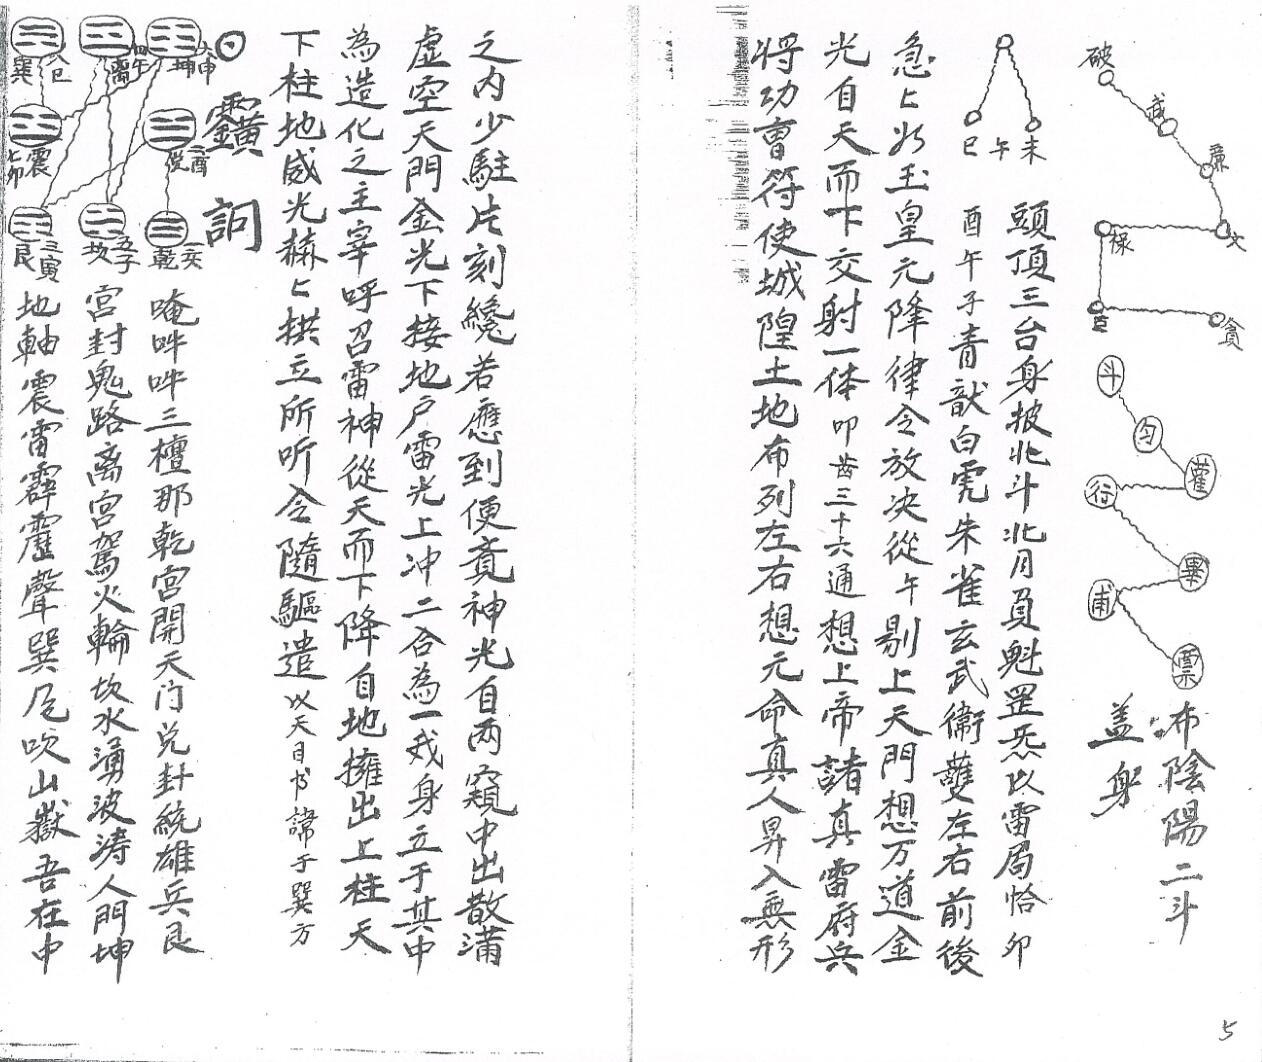 破
武
廉
文
禄
巨
貪
斗
勺
䕶
行
畢
甫
票
布陰陽二斗
盖身
未
午
巳
頭頂三台身披北斗北月負魁罡炁以雷局恰卯
酉午子青獸白虎朱雀玄武衞護左右前後
急上以玉皇元降律令放决從午剔上天門想万道金
光自天而下交射一体叩齒三十六通想上帝諸真雷府兵
将功曹符使城隍土地布列左右想元命真人昇入無形
之内少駐片刻纔若應到便覔神光自两窺中出散满
虚空天門金光下接地户雷光上冲二合為一我身立于其中
為造化之主宰呼召雷神從天而下降自地擁出上柱天
下柱地威光赫上拱立所听令隨驅遣以天目书諱于巽方
詞
六申
坤
四午
離
八巳
巽
二酉
兑
七卯
震
一亥
乾
五子
坎
三寅
艮
唵吽吽三檀那乾宫開天门兑封統雄兵艮
宫封鬼路离宫駕火輪坎水湧波涛人門坤
地軸震雷霹靂聲巽凬吹山嶽吾在中
5